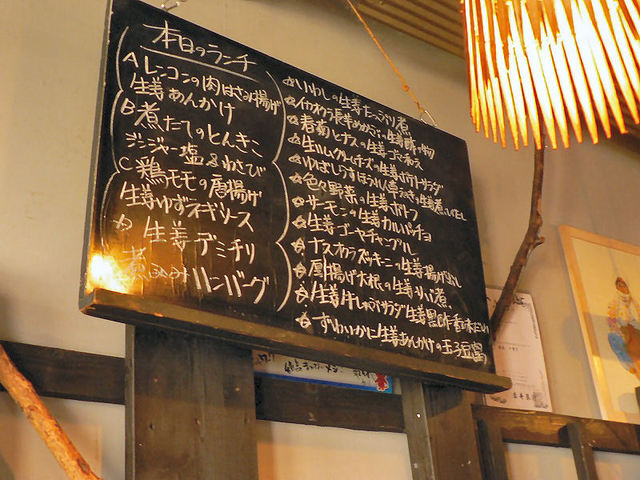 本日のランチ
A レンコンの肉はさみ揚げ
生姜あんかけ
B 煮たてのとんきこ
ジンジャー塩&わさび
C 鶏モモの唐揚げ
生姜ゆずネギソース
D 生姜デミチリ
煮込みハンバーグ
☆いわしの生姜たっぷり煮
☆春菊とナスの生姜ごま和え
☆生ハムクリームチーズの生姜ポテトサラダ
☆ゆばしらすほうれん草の生姜煮びたし
☆色々野菜の生姜ポトフ
☆サーモンの生姜カルパッチョ
☆生姜ゴーヤチャンプル
☆ナスオクラズッキーニの生姜揚げ出し
☆厚揚げ大根の生姜そぼろ煮
☆生姜牛しゃぶサラダ 生姜黒酢香味だれ
☆ずわいかに生姜あんかけの玉子豆腐